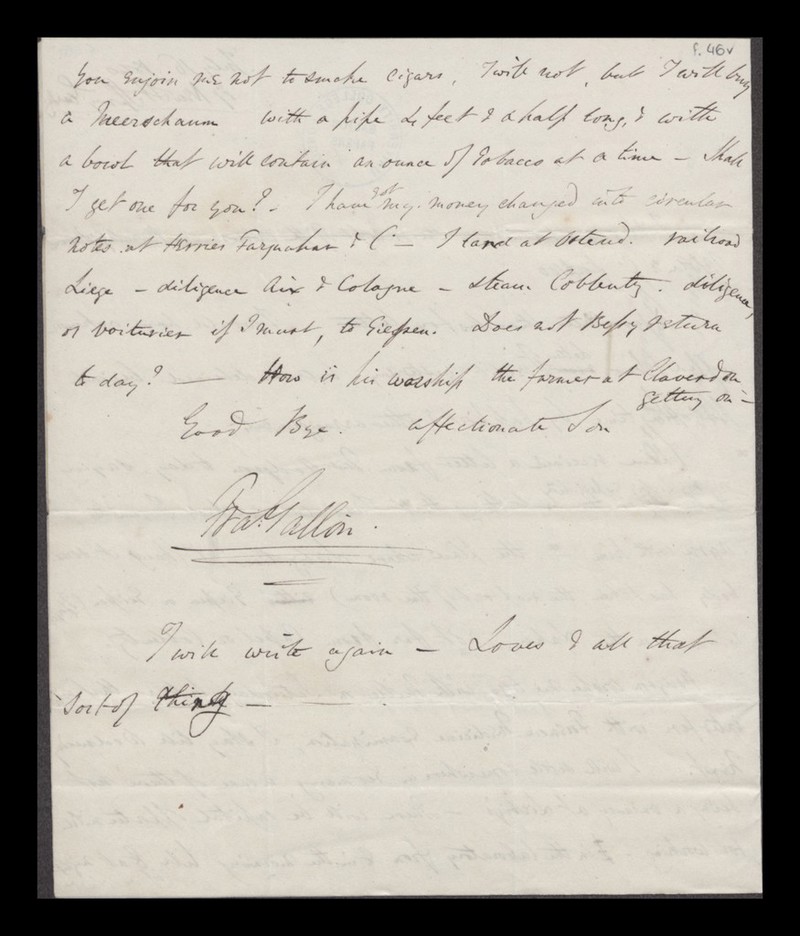 f. 46v
You enjoin me not to smoke cigars, I will not, but I will buy
a Meerschaum with a pipe 2½ feet & a half long, & with
a bowl that will contain an ounce of Tobacco at a time – Shall
I get one for you? – I have got my money changed into circular
notes at Herries Farquahar & Co – I land at Ostend. railroad
Liege – diligence Aix & Cologne – steam Coblentz. diligence,
or voiturier if I must, to Giessen. Does not Bessy return
to day? — How is his worship the farmer at Claverdon
getting on –
Good Bye. affectionate Son
Fras. Galton.
I will write again – Loves & all that
sort of thing – —